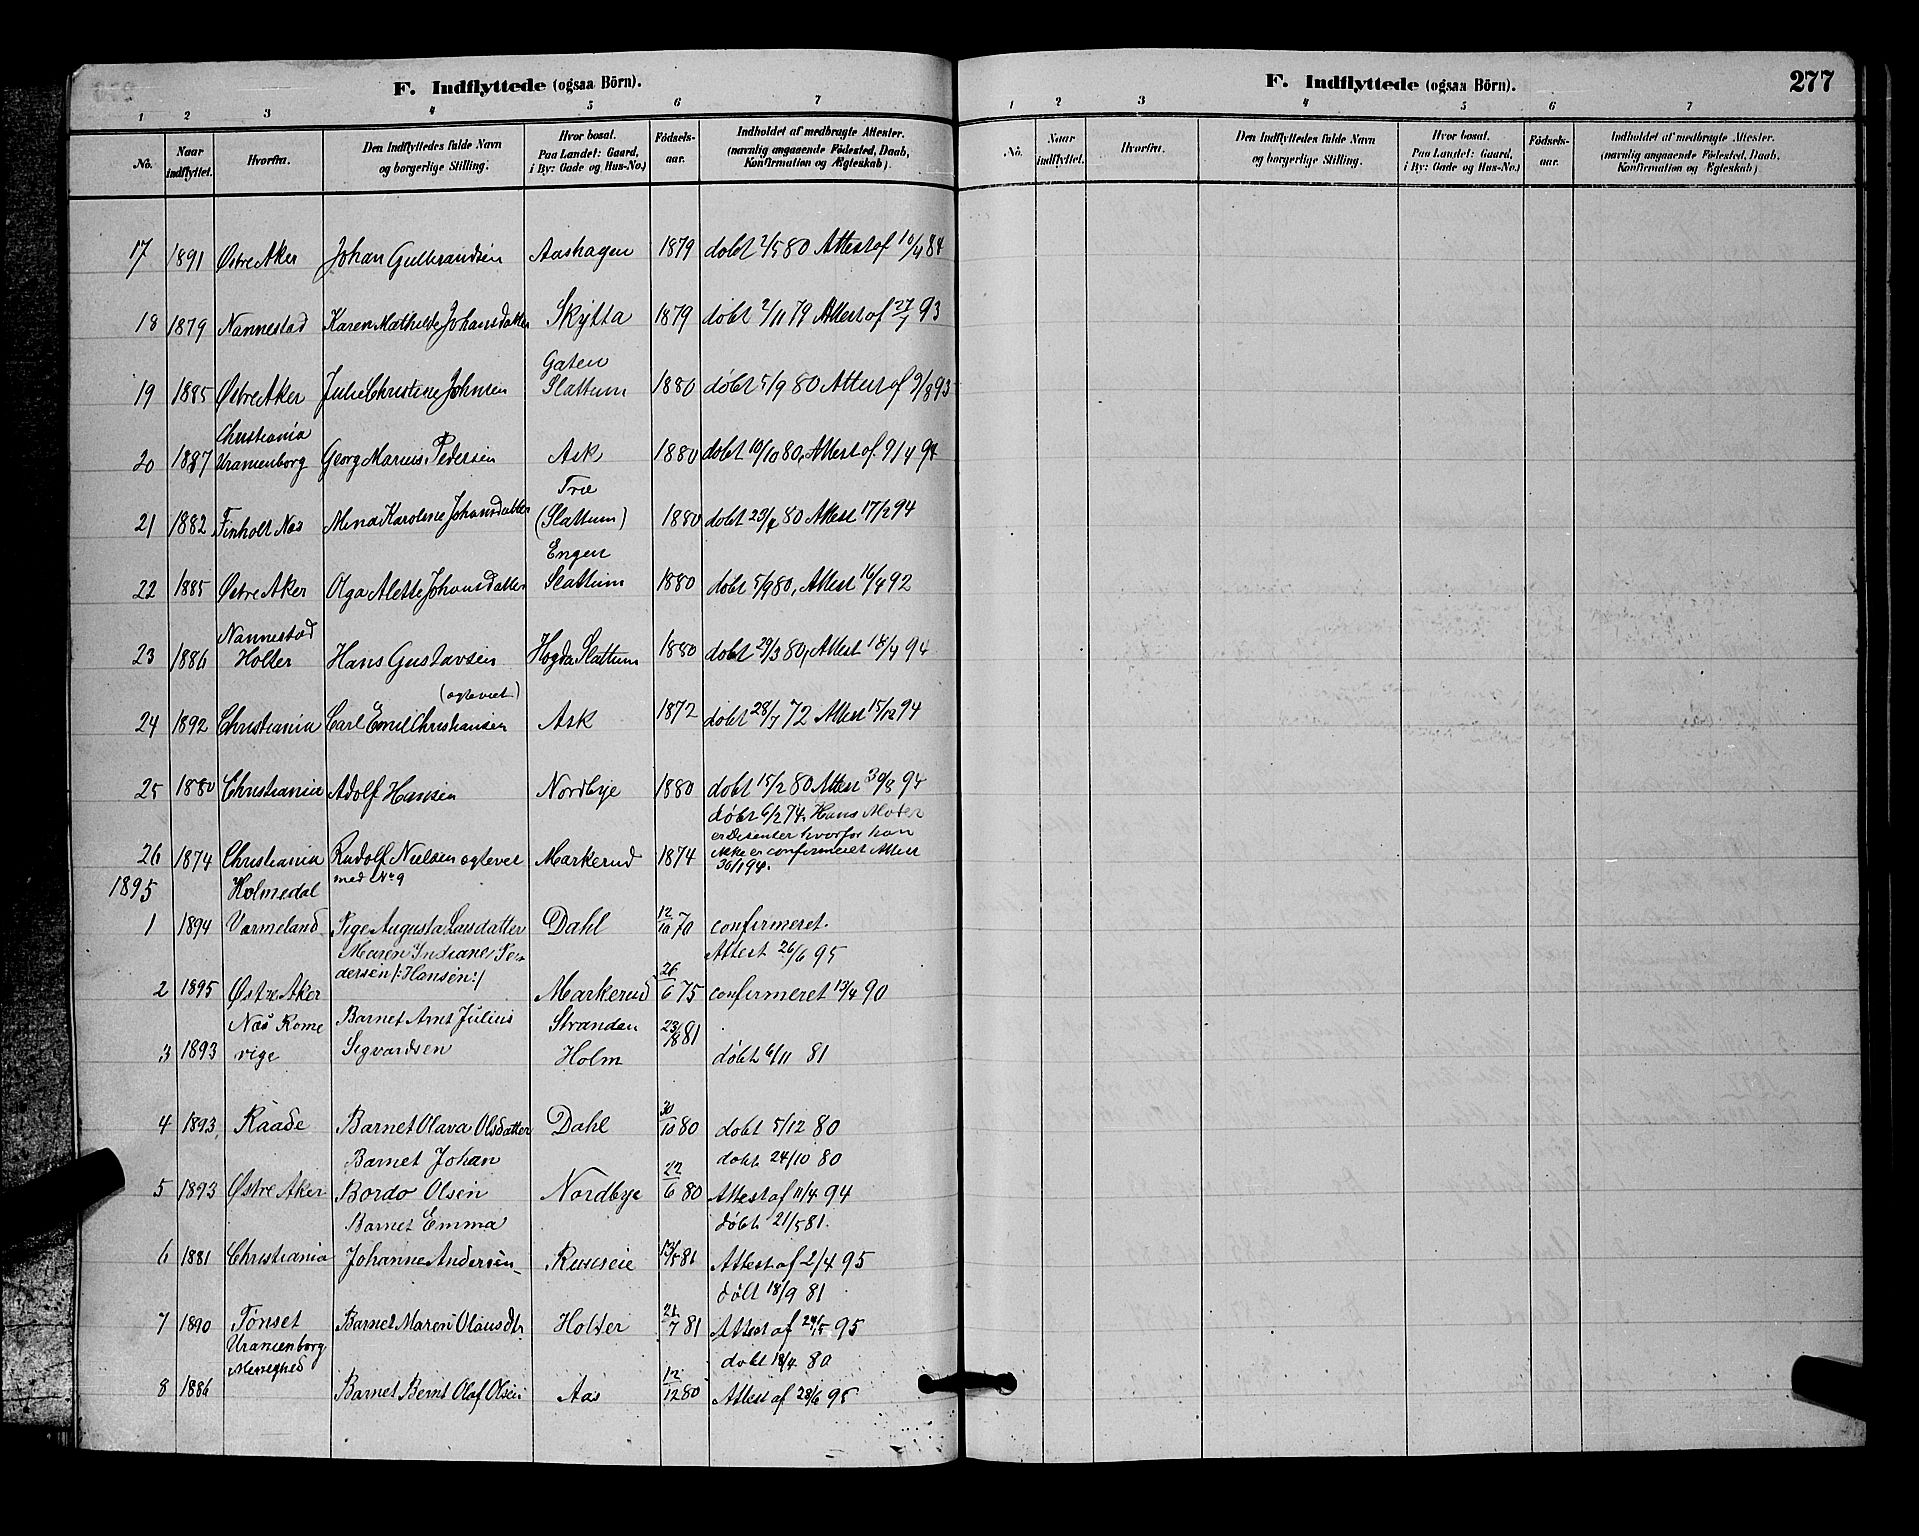 F. Indflyttede (ogsaa Börn).
1 2 3 4 5 6 7
No. Naar indflyttet. Hvorfra. Den Indflyttedes fulde Navn og borgerlige Stilling. Hvor bosat. Paa Landet: Gaard, i By: Gade og Hus-No.) Födsels-aar. Indholdet af medbragte Attester. (navnlig angaaende Födested, Daab, Konfirmation og Ægteskab).
17 1891 Østre Aker Johan Gulbrandsen Aashagen 1879 døbt 2/5 80 Attest af 10/4 84
18 1879 Nannestad Karen Mathilde Johansdatter Skytta 1879 døbt 2/11 79 Attest af 27/7 93
Gaten
19 1885 Østre Aker Julie Christine Johnsen Slattum 1880 døbt 5/9 80 Attest af 9/8 93
Christiania
20 1887 Uranienborg Georg Marius Pedersen Ask 1880 døbt 10/10 80, Attest af 9/4 94
Træ
21 1882 Finholt Næs Mina Karoline Johansdatter (Slattum) 1880 døbt 23/ 80 Attest 17/2 94
Engen
22 1885 Østre Aker Olga Alette Johansdatter Slattum 1880 døbt 5/9 80, Attest 16/4 92
Nannestad
23 1886 Holter Hans Gustavsen Høgda Slattum 1880 døbt 29/3 80, Attest 18/4 94
(ogteviet)
24 1892 Christiania Carl Emil Christiansen Ask 1872 døbt 28/7 72 Attest 15/12 94
25 1880 Christiania Adolf Hansen Nordbye 1880 døbt 15/2 80 Attest 30/8 94
døbt 6/2 74. Hans Moder
er Desenter hvorfor han
26 1874 Christiania Rudolf Nielsen ogtevet Markerud 1874 ikke er confirmeret Attest
med No 9 30/1 94.
1895 Holmedal
1 1894 Varmeland Pige Augusta Larsdatter Dahl 12/10 70 confirmeret.
Maren Indiane Pe- Attest 26/6 95
dersen /:Hansen:/
2 1895 Østre Aker Markerud 26/6 75 confirmeret 13/4 90
Næs Rome Barnet Arnt Julius Stranden
3 1893 rige Sigvardsen Holm 23/8 81 døbt 6/11 81
4 1893 Raade Barnet Olava Olsdatter Dahl 30/10 80 døbt 5/12 80
Barnet Johan døbt 24/10 80
5 1893 Østre Aker Bordo Olsen Nordbye 22/6 80 Attest af 11/4 94
Barnet Emma døbt 21/5 81.
6 1881 Christiania Johanne Andersen 81 Attest af 2/4 95
døbt 18/9 81
7 1890 Tønset Barnet Maren Olausdtr Holter 21/7 81 Attest af 24/5 95
Uranienborg døbt 18/4 80
Menighed
8 1886 Barnet Bernt Olaf Olsen Aas 12/12 80 Attest af 28/6 95
F. Indflyttede (ogsaa Börn). 277
1 2 3 4 5 6 7
No. Naar indflyttet. Hvorfra. Den Indflyttedes fulde Navn og borgerlige Stilling. Hvor bosat. Paa Landet: Gaard, i By: Gade og Hus-No.) Födsels-aar. Indholdet af medbragte Attester. (navnlig angaaende Födested, Daab, Konfirmation og Ægteskab)